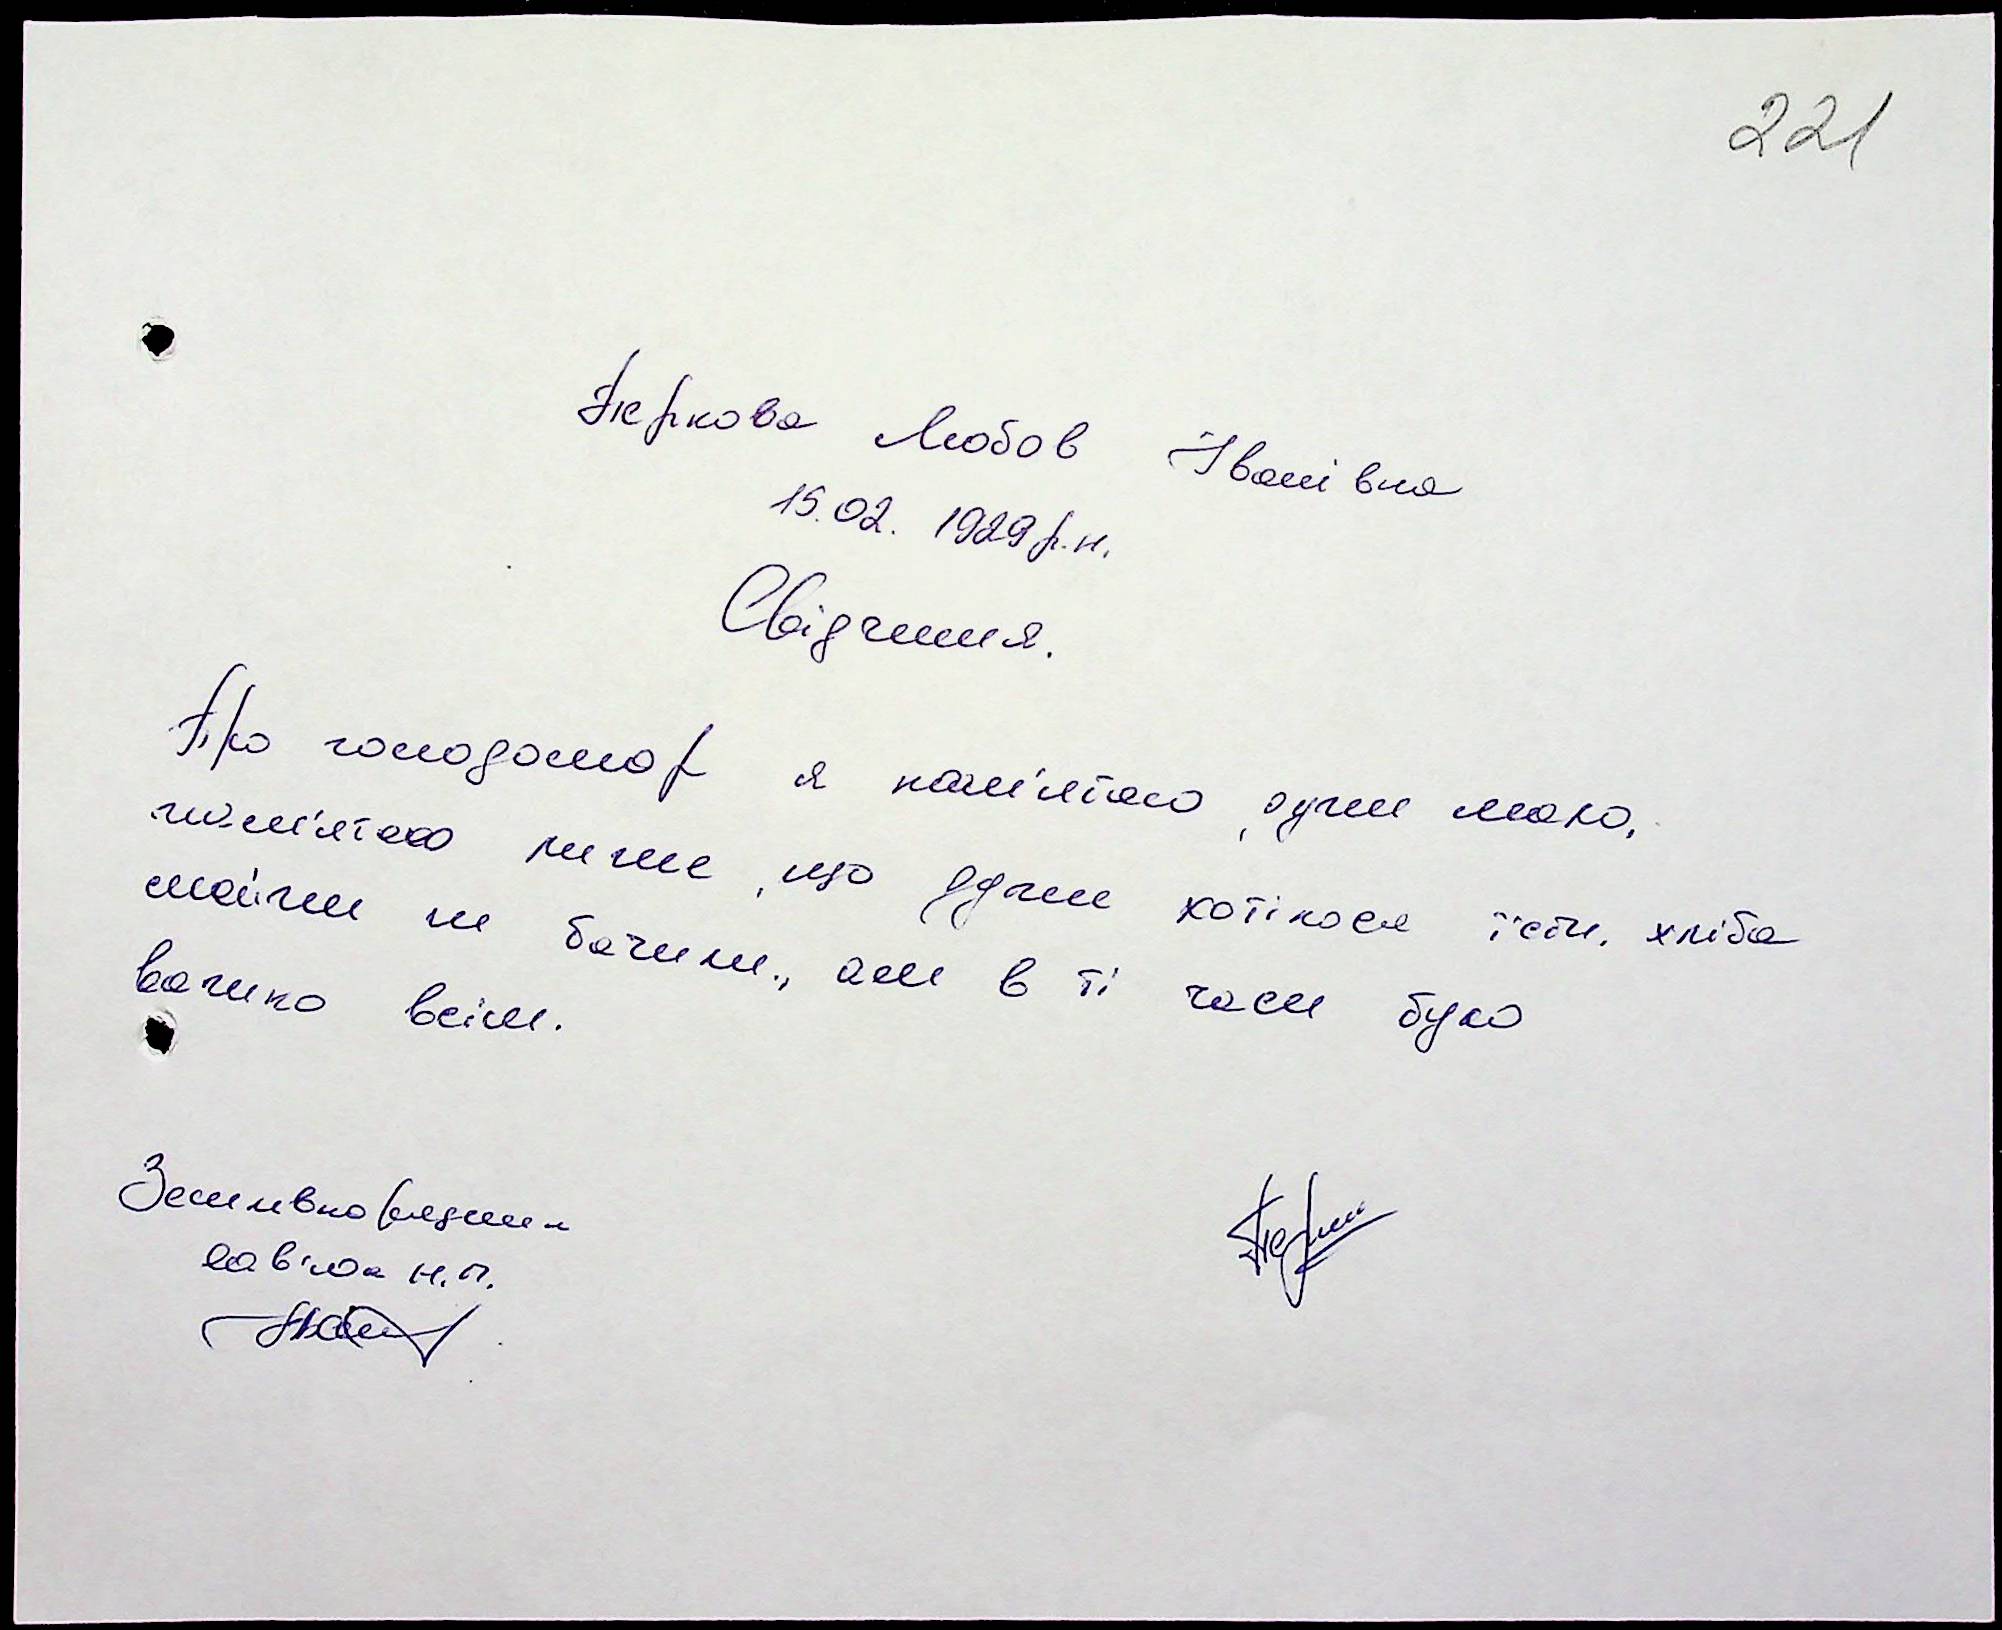 221
Пєркова Любов Іванівна
15.02. 1929 р.н.
Свідчення.
Про голодомор я пам'ятаю, дуже мало,
пам'ятаю лише, що дуже хотілося їсти, хліба
майже не бачили, але в ті часи було
важко всім.
Землевпорядник
Н.П.